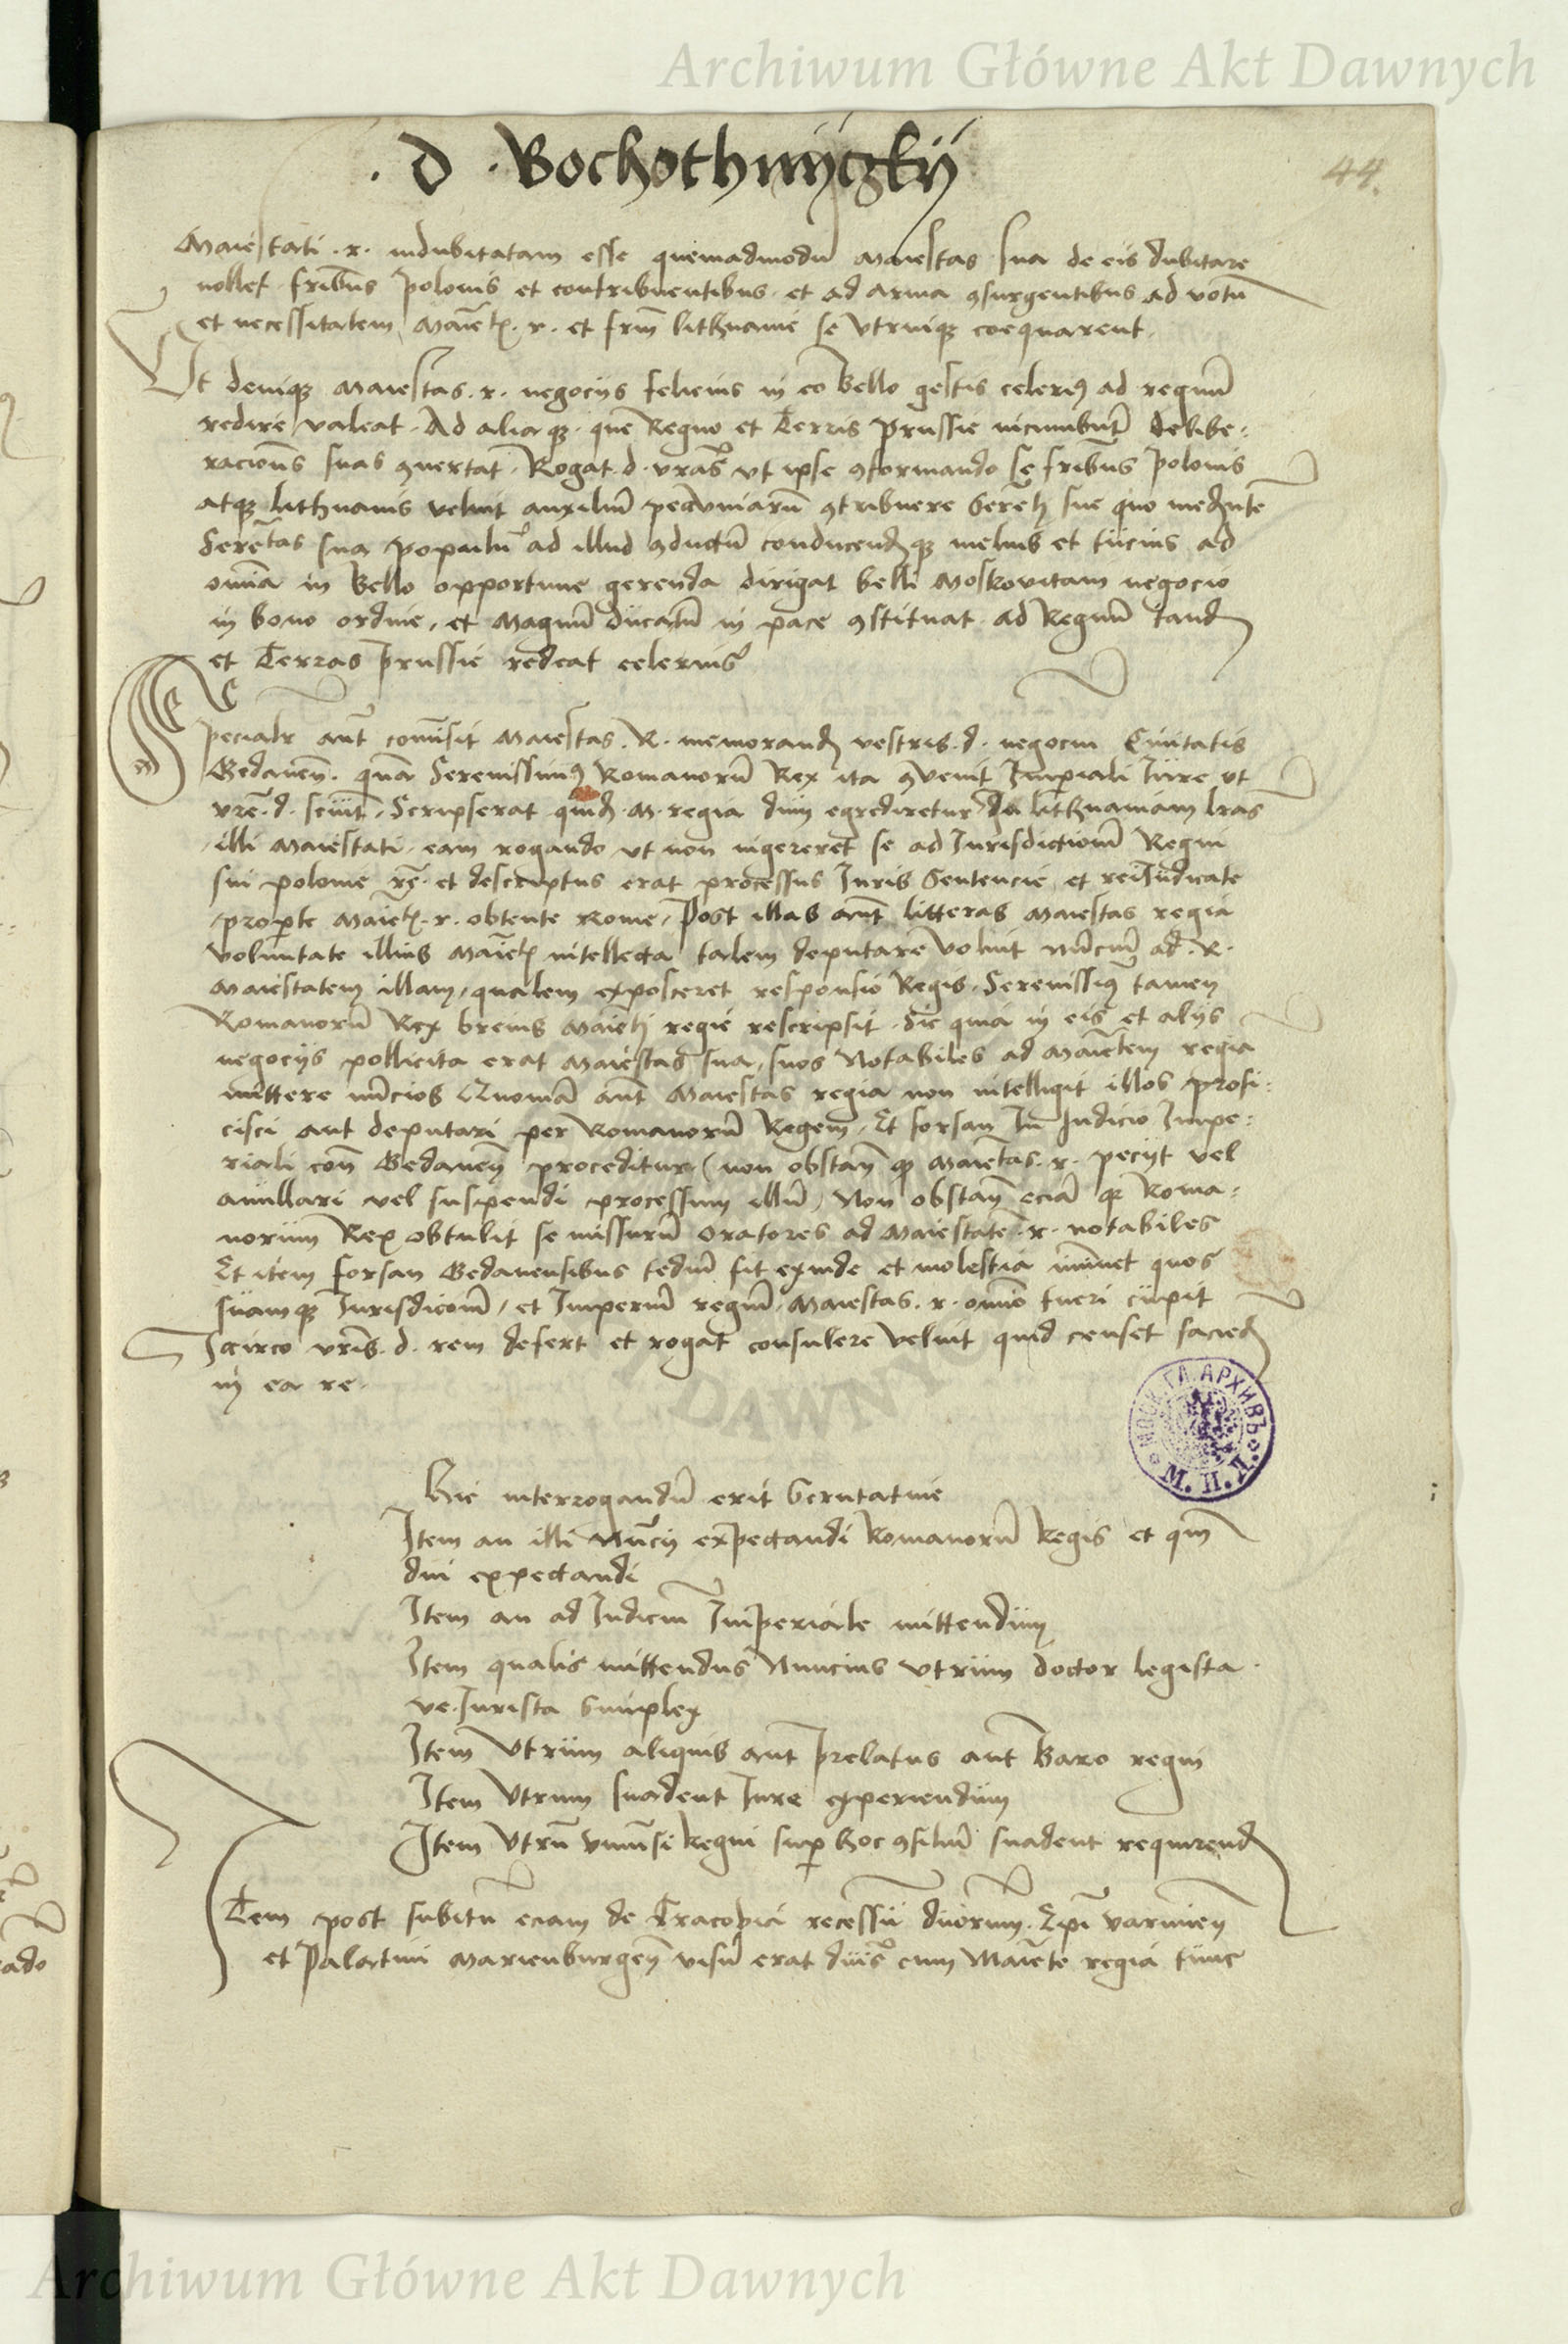 Archiwum Główne Akt Dawnych
. d . Bochothnyczky
44.
Maiestati . r. indubitatam esse quemadmodu Maiestas sua de eis dubitare
nollet fribus Polonis et contribuentibus et ad arma 9surgentibus ad votu
et necessitatem Maietis . r. et frum lithuanie se utruique coequarent
Ut denique Maiestas . r. negociis felicius in eo bello gestis celerius ad regnu
redire valeat . Ad aliaque que Regno et Terris Prussie incumbunt delibe-
racions suas 9vertat . Rogat . d . vras ut ipse 9formando se fribus Polonis
atque lithuanis velint auxiliu pecuniaru 9tribuere Sereti sue quo mediante
Seretas sua ad illud 9ductu conducendque melius et tucius ad
omnia in bello opportune gerenda dirigat belli Moskovitani negocio
in bono ordine, et Magnu ducatu in pace 9stituat ad Regnu tand
et Terras Prussie redeat celerius
Specialr aut comisit Maiestas . R. memorand vestris . d . negociu Civitatis
Gedanen . qua Serenissimus Romanoru Rex ita 9venit Imperiali Jure ut
vre . d . sciut . Scripserat quid . M . regia dum egrederetur ad lithuaniam lras
illi Maiestati . eam rogando ut non ingereret se ad Jurisdictionem Regni
sui Polonie rc. et descriptus erat processus Juris Sentencie et rei Judicate
pro parte Maietis . r. obtente Rome . Post illas aut litteras Maiestas regia
voluntate illius Maietis intellecta talem deputare voluit nunciu ad . R.
Maiestatem illam, qualem exposceret responsio Regis . Serenissimus tamen
Romanoru Rex brevius Maieti regie rescripsit . Sic quia in eis et aliis
negociis pollicita erat Maiestas sua, suos Notabiles ad Maietem regia
mittere nuncios Quonia aut Maiestas regia non intelligit illos profi-
cisci aut deputari per Romanoru Regem . Et forsan in Judicio Impe-
riali con Gedanen proceditur (non obstan quod Maietas . r. peciit vel
anullari vel suspendi processum illu, Non obstan ecia quod Roma-
norum Rex obtulit se missuru oratores ad Maiestate . r. notabiles
Et item forsan Gedanensibus tediu fit exinde et molestia iminet quos
suamque Jurisdiconem, et Imperiu regiu, Maiestas . r. omnino tueri cupit
Iccirco vris . d . rem defert et rogat consulere velint quid censet faciend
in ea re .
Hic interrogandu erit Scrutative
Item an illi Nuncii expectandi Romanoru Regis et qm
diu expectandi
Item an ad Judiciu Imperiale mittendum
Item qualis mittendus Nuncius utrum doctor legista
ve Jurista Simplex
Item utrum aliquis aut Prelatus aut Baro regni
Item utrum suadent Jure experiendum
Item utru Universi Regni super hoc 9siliu suadent requirend
Item post subitu eciam de Cracovia recessu duorum . Epi Varmien
et Palatini Marienburgen visu erat duis cum Maiete regia tunc
МОСК. ГЛ. АРХИВЪ
М. И. Д.
Archiwum Główne Akt Dawnych